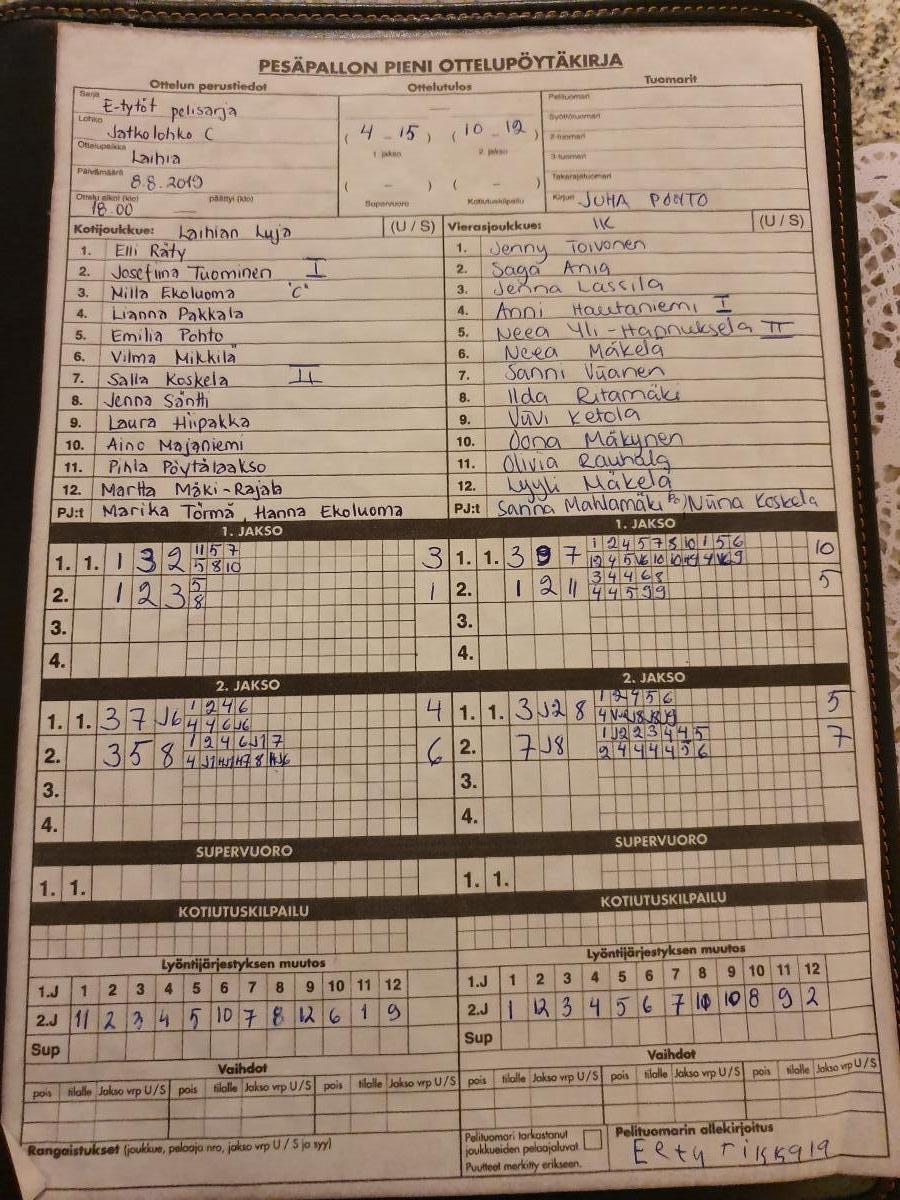 PESÄPALLON PIENI OTTELUPÖYTÄKIRJA
Ottelun perustiedot Ottelutulos Tuomarit
Sarja E-tytöt pelisarja
Lohko Jatkolohko C
Ottelupaikka Laihia
Päivämäärä 8.8.2019
Ottelu alkoi (klo) 18.00 päättyi (klo) —
( 4 - 15 ) ( 10 - 12 )
1. jakso 2. jakso
( - ) ( - )
Supervuoro Kotiutuskilpailu
Pelituomari
Syöttötuomari
2-tuomari
3-tuomari
Takarajatuomari
Kirjuri JUHA POHTO
Kotijoukkue: Laihian Luja (U / S) Vierasjoukkue: IK (U / S)
1. Elli Räty 1. Jenny Toivonen
2. Josefiina Tuominen I 2. Saga Ania
3. Milla Ekoluoma "C" 3. Jenna Lassila
4. Lianna Pakkala 4. Anni Hautaniemi I
5. Emilia Pohto 5. Neea Yli-Hannuksela II
6. Vilma Mikkilä 6. Neea Mäkelä
7. Salla Koskela II 7. Sanni Viianen
8. Jenna Säntti 8. Ilda Ritamäki
9. Laura Hiipakka 9. Viivi Ketola
10. Aino Majaniemi 10. Oona Mäkynen
11. Pihla Pöytälaakso 11. Olivia Rauhala
12. Martta Mäki-Rajala 12. Lyyli Mäkelä
PJ:t Marika Törmä, Hanna Ekoluoma PJ:t Sanna Mahlamäki Niina Koskela
1. JAKSO 1. JAKSO
1. 1. 1 3 2 11 5 7 3 1. 1. 3 9 7 1 2 4 5 7 8 10 1 5 6 10
5 8 10
2. 1 2 3 5 1 2. 1 2 11 3 4 4 6 8 5
8 4 4 5 9 9
3. 3.
4. 4.
2. JAKSO 2. JAKSO
1. 1. 3 7 J6 1 2 4 6 4 1. 1. 3 J2 8 1 2 4 5 6 5
4 4 6 J6
2. 3 5 8 1 2 4 6 J1 7 6 2. 7 J8 1 J2 2 3 4 4 5 7
2 4 4 4 4 5 6
3. 3.
4. 4.
SUPERVUORO SUPERVUORO
1. 1. 1. 1.
KOTIUTUSKILPAILU KOTIUTUSKILPAILU
Lyöntijärjestyksen muutos Lyöntijärjestyksen muutos
1.J 1 2 3 4 5 6 7 8 9 10 11 12 1.J 1 2 3 4 5 6 7 8 9 10 11 12
2.J 11 2 3 4 5 10 7 8 12 6 1 9 2.J 1 12 3 4 5 6 7 10 8 9 2
Sup Sup
Vaihdot Vaihdot
pois tilalle Jakso vrp U / S pois tilalle Jakso vrp U / S pois tilalle Jakso vrp U / S pois tilalle Jakso vrp U / S pois tilalle Jakso vrp U / S pois tilalle Jakso vrp U / S
Rangaistukset (joukkue, pelaaja nro, jakso vrp U / S ja syy)
Pelituomari tarkastanut
joukkueiden pelaajaluvat
Puutteet merkitty erikseen.
Pelituomarin allekirjoitus
Eety rikkala